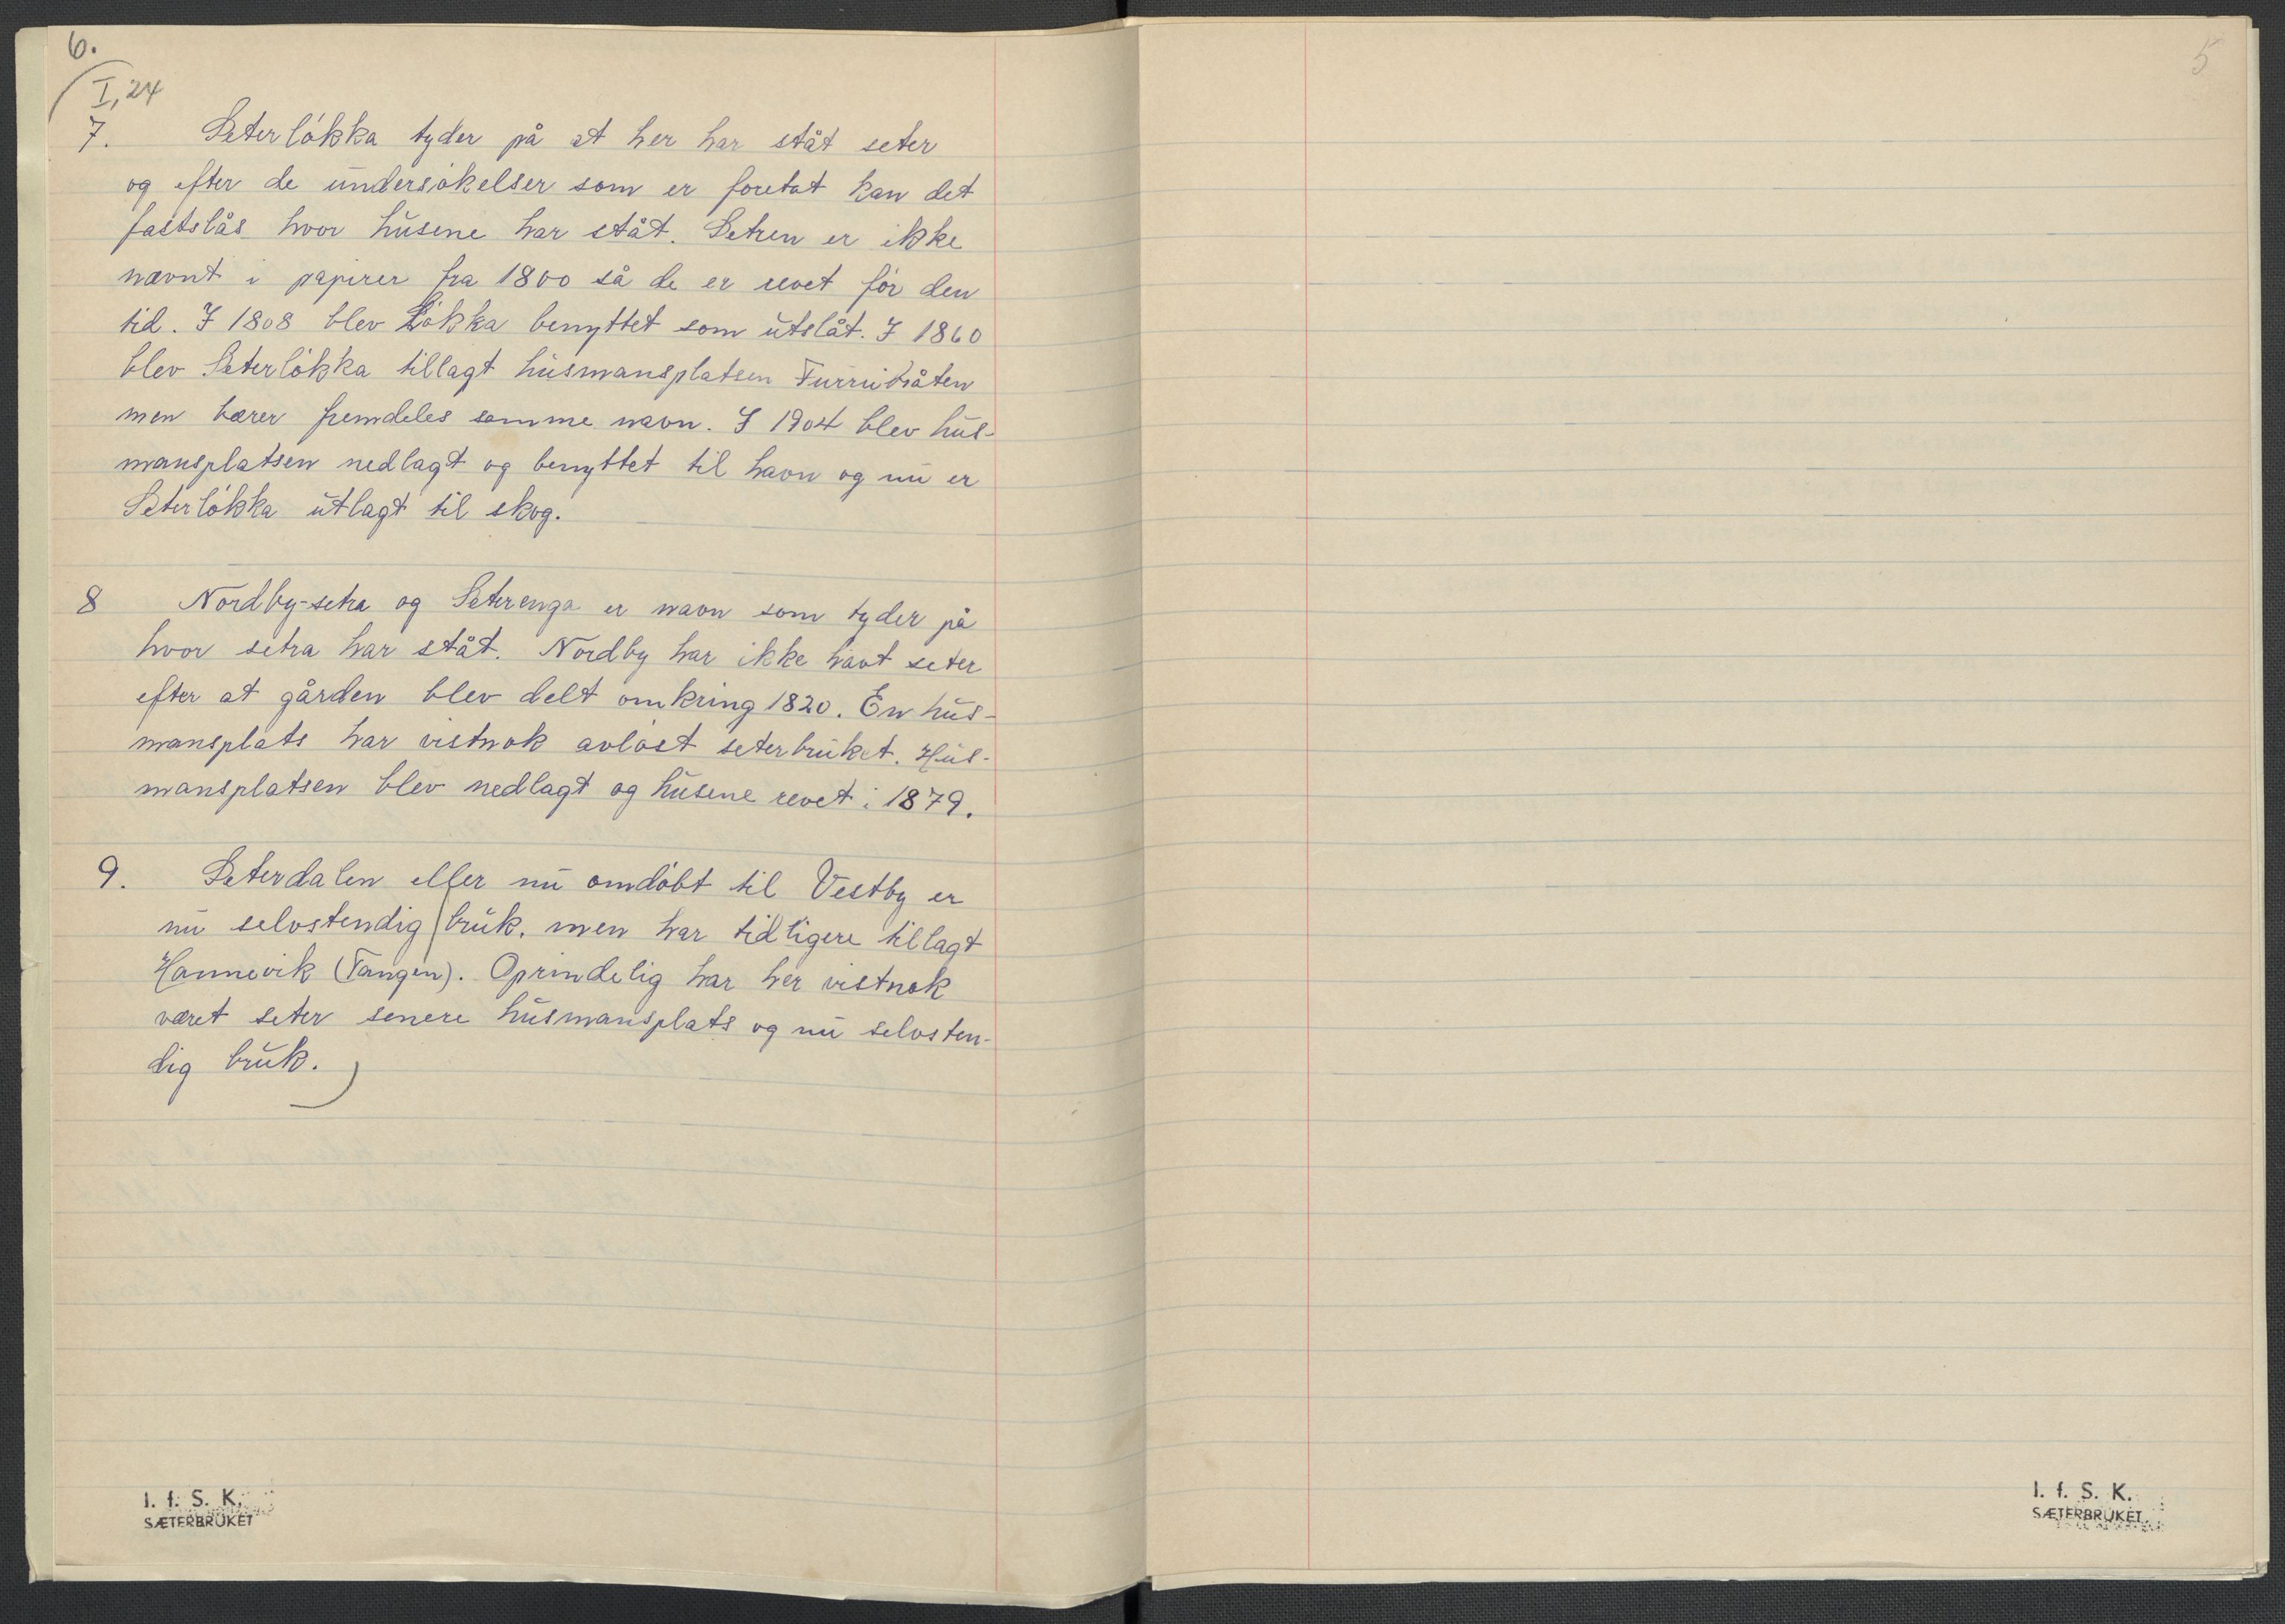 6.
I, 24
7. Seterløkka tyder på at her har ståt seter
og efter de undersøkelser som er foretat kan det
fastslås hvor husene har ståt. Setren er ikke
nævnt i papirer fra 1800 så de er revet før den
tid. I 1808 blev Løkka benyttet som utslåt. I 1860
blev Seterløkka tillagt husmansplatsen
men bærer fremdeles samme navn. I 1904 blev hus-
mansplatsen nedlagt og benyttet til havn og nu er
Seterløkka utlagt til skog.
8 Nordby-setra og Seterenga er navn som tyder på
hvor setra har ståt. Nordby har ikke havt seter
efter at gården blev delt omkring 1820. En hus-
mansplats har vistnok avløst seterbruket. Hus-
mansplatsen blev nedlagt og husene revet i 1879.
9. Seterdalen eller nu omdøbt til Vestby er
nu selvstendig bruk. men har tidligere tillagt
Hannevik (Tangen). Oprindelig har her vistnok
været seter senere husmansplats og nu selvsten-
dig bruk.
I. f. S. K.
SÆTERBRUKET
5
I. f. S. K.
SÆTERBRUKET